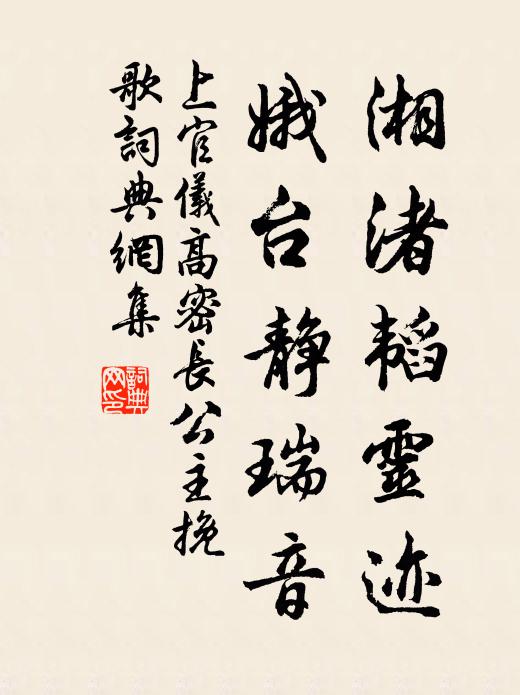 湘渚韬靈迹
娥台静瑞音
上官儀高密長公主挽
歌詞典網集
詞典网印